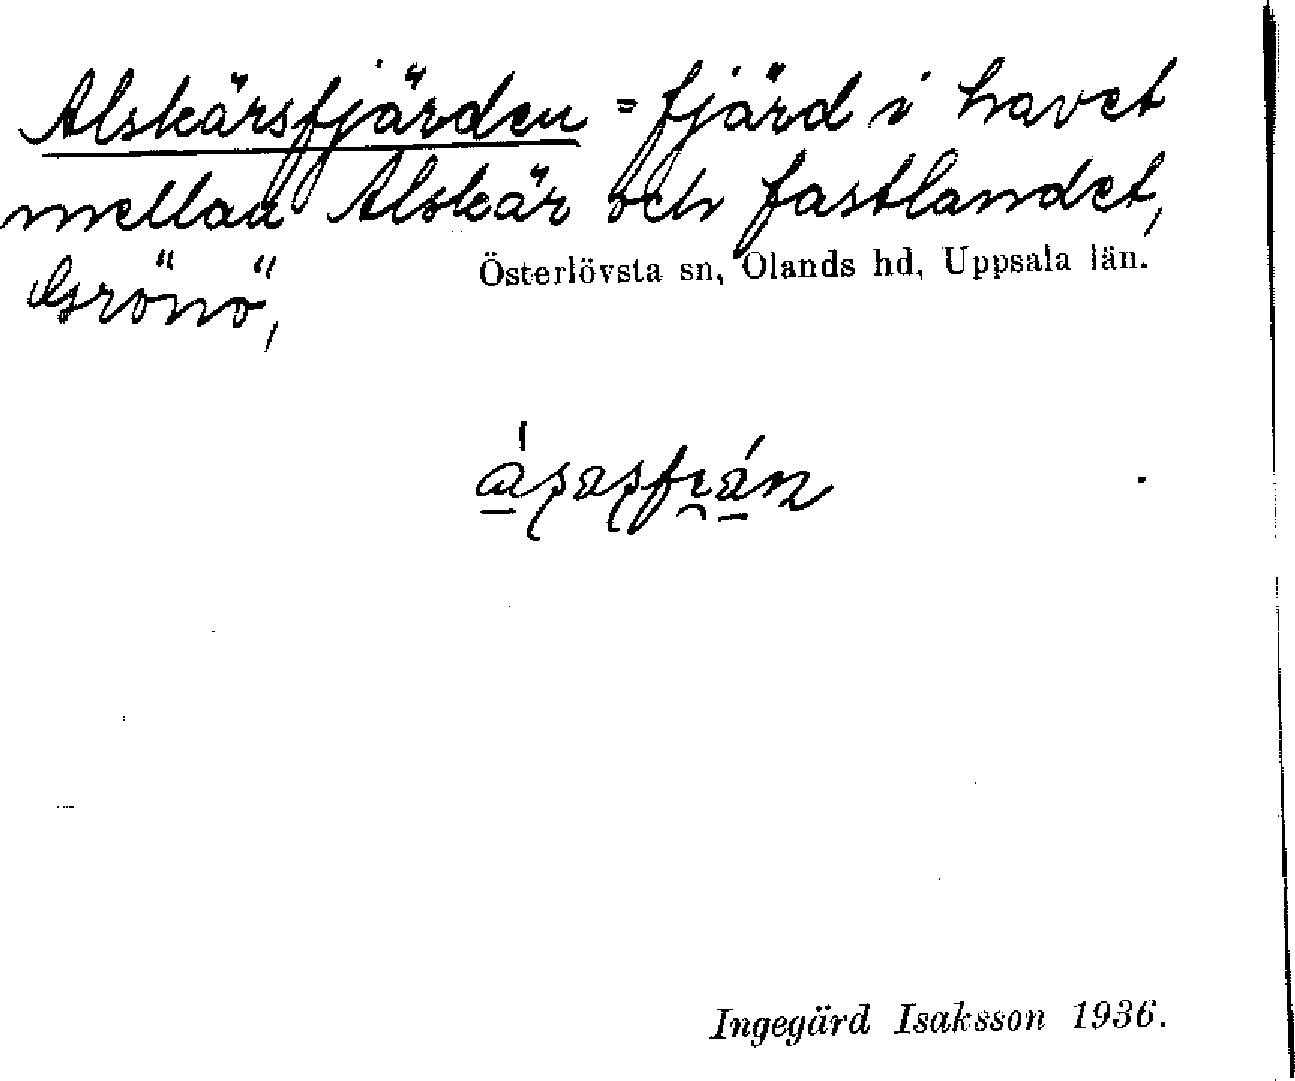 Alskärsfjärden = fjärd i havet
mellan Alskär och fastlandet,
Grönö,
Österlövsta sn, Olands hd, Uppsala län.
Ingegärd Isaksson 1936.